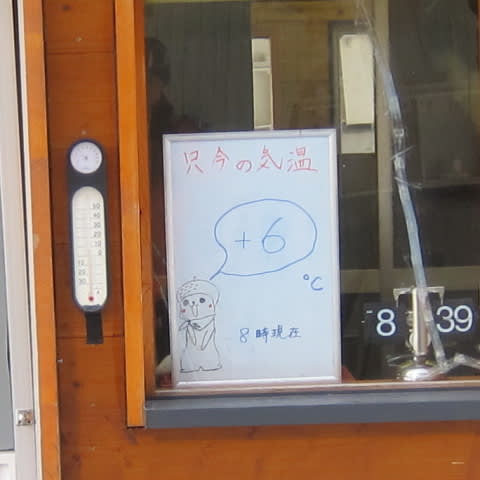 只今の気温
+6
°C
8時現在
8 39
50
40
30
20
10
0
10
20
30